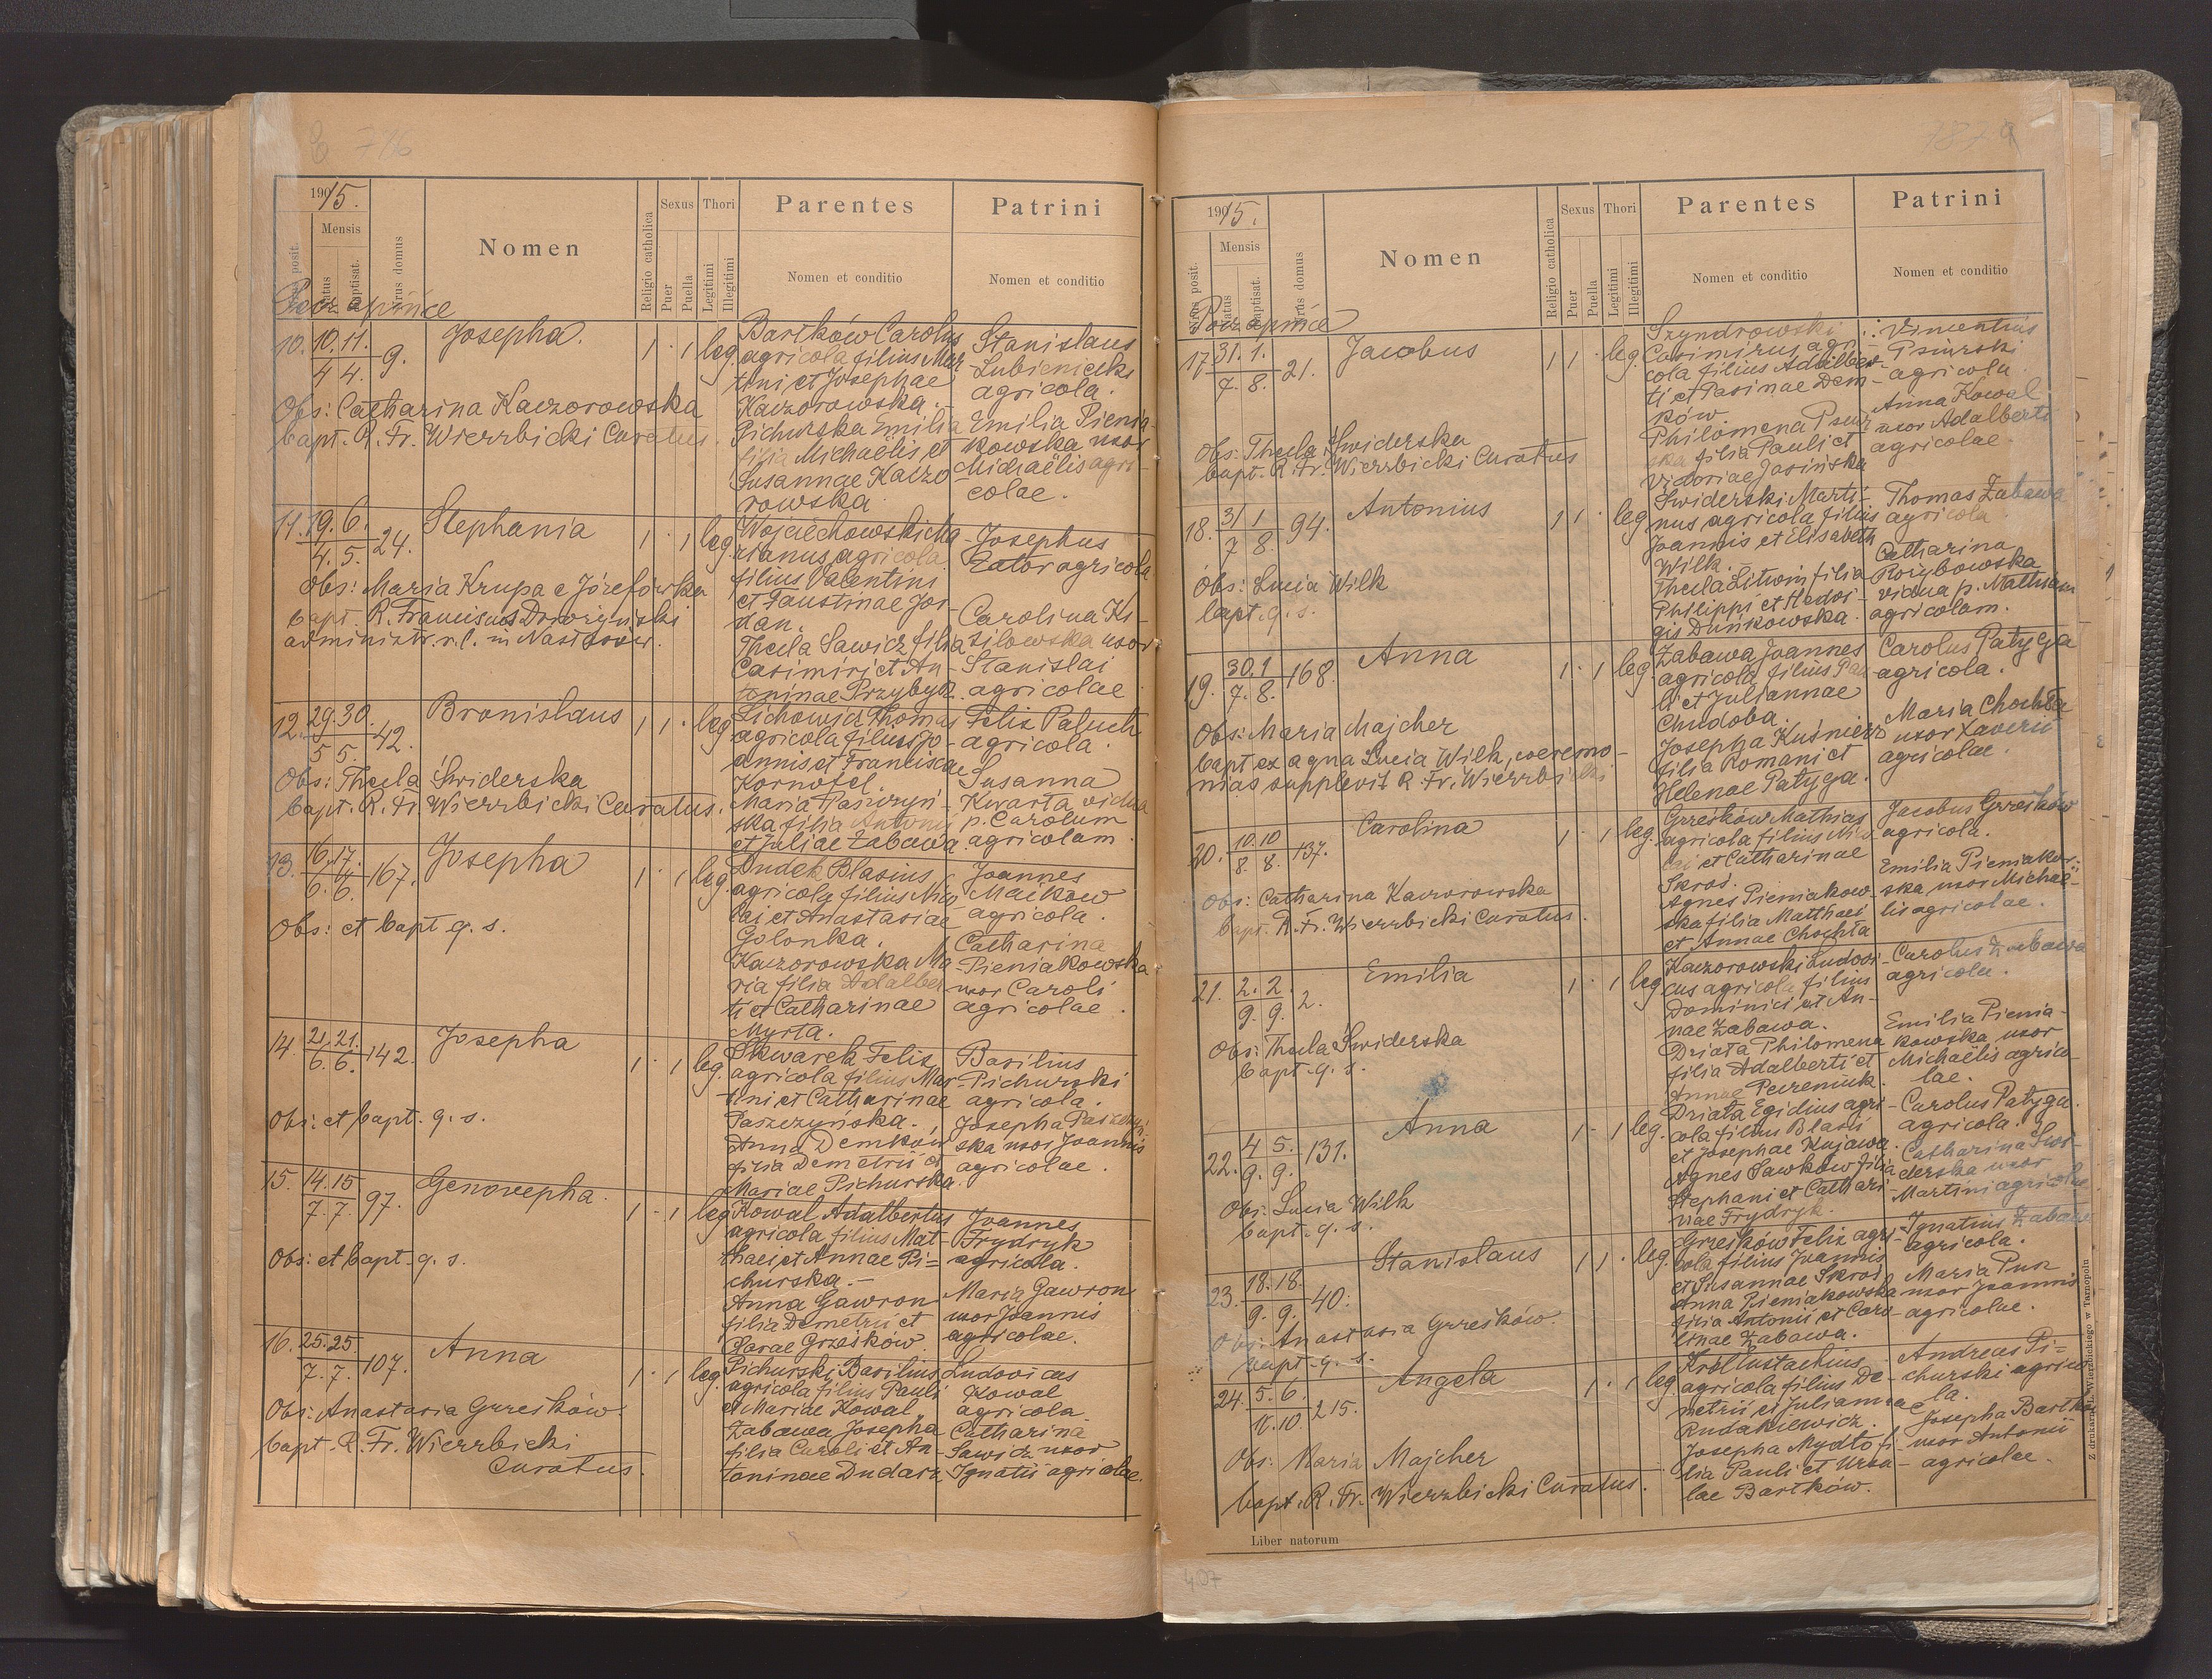 1915.
Mensis
Nomen
Religio catholica
Sexus
Puer
Puella
Thori
Legitimi
Illegitimi
Parentes
Nomen et conditio
Patrini
Nomen et conditio
10. 10. 11. 9. Josepha. 1 · 1 leg.
4 4.
Bartków Carolus
agricola filius Mar-
tini et Josephae
Kaczorowska.
Pichurska Emilia
filia Michaëlis et
Susannae Kaczo-
rowska
Stanislaus
Lubieniecki
agricola.
Emilia Pienia-
kowska uxor
Michaëlis agri-
colae.
Obs: Catharina Kaczorowska
bapt. R. Fr. Wierzbicki Curatus.
11. 19. 6. 24. Stephania 1 · 1 leg.
4. 5.
Wojciechowski Ma-
rianus agricola
filius Valentini
et Faustinae Jor-
dan.
Thecla Sawicz filia
Casimiri et An-
toninae Przybyk.
Josephus
Zator agricola
Carolina Ki-
zilowska uxor
Stanislai
agricolae
Obs: Maria Krupa e Józefówka
bapt. R. Franciscus
administr. r. l. in Nastasow.
12. 29. 30. 42. Bronislaus 1 1 · leg
5 5.
Lichowid Thomas
agricola filius Jo-
annis et Franciscae
Kornofel.
Maria Paszczyń-
ska filia Antonii
et Juliae Zabawa
Felix Paluch
agricola.
Susanna
Kwarta vidua
p. Carolum
agricolam
Obs: Thecla Świderska
bapt. R. Fr. Wierzbicki Curatus.
13. 16. 17. 167. Josepha 1 · 1 leg.
6. 6.
Dudek Blasius
agricola filius Nico-
lai et Anastasiae
Golonka.
Kaczorowska Ma-
ria filia Adalber-
ti et Catharinae
Myrta.
Joannes
Maćków
agricola.
Catharina
Pieniakowska
uxor Caroli
agricolae.
Obs: et bapt. q. s.
14. 21. 21. 142. Josepha 1 · 1 leg.
6. 6.
Skwarek Felix
agricola filius Mar-
tini et Catharinae
Paszczyńska.
Anna Demków
filia Demetrii et
Mariae Pichurska.
Basilius
Pichurski
agricola.
Josepha Paszczyń-
ska uxor Joannis
agricolae.
Obs: et bapt. q. s.
15. 14. 15 97. Genovepha. 1 · 1 leg
7. 7.
Kowal Adalbertus
agricola filius Mat-
thaei et Annae Pi-
churska.
Anna Gawron
filia Demetrii et
Clarae Grześków.
Joannes
Frydryk
agricola.
Maria Gawron
uxor Joannis
agricolae.
Obs: et bapt. q. s.
16. 25. 25. 107. Anna 1 · 1 leg.
7. 7.
Pichurski Basilius
agricola filius Pauli
et Mariae Kowal
Zabawa Josepha
filia Caroli et An-
toninae Dudarz
Ludovicus
Kowal
agricola
Catharina
Sawicz uxor
Ignatii agricolae.
Obs: Anastasia Grześków.
bapt. R. Fr. Wierzbicki
Curatus.
1915.
Mensis
Nomen
Religio catholica
Sexus
Puer
Puella
Thori
Legitimi
Illegitimi
Parentes
Nomen et conditio
Patrini
Nomen et conditio
17 31. 1. 21. Jacobus 1 1 · leg.
7. 8.
Szyndrowski
Casimirus agri-
cola filius Adalber-
ti et Parinae Dem-
ków.
Philomena Psiur-
ska filia Pauli et
Victoriae Jasińska
Vincentius
Psiurski
agricola.
Anna Kowal
uxor Adalberti
agricolae.
Obs: Thecla Świderska
bapt. R. Fr. Wierzbicki Curatus
18. 31 1 94. Antonius 1 1 · leg
7 8.
Świderski Marti-
nus agricola filius
Joannis et Elisabeth
Wilk.
Thecla Litwin filia
Philippi et Hedvi-
gis Duńkowska.
Thomas Zabawa
agricola
Catharina
Rozybowska
vidua p. Mathiam
agricolam.
Obs: Lucia Wilk
bapt. q. s.
19. 30. 1 168. Anna 1 · 1 leg.
7. 8.
Zabawa Joannes
agricola filius Pau-
li et Juliannae
Chudoba.
Josepha Kuśnierz
filia Romani et
Helenae Patyga.
Carolus Patyga
agricola.
Maria Chochla
uxor Xaverii
agricolae.
Obs: Maria Majcher
bapt. ex aqua Lucia Wilk, ceremo-
nias supplevit R. Fr. Wierzbicki
20. 10. 10 137. Carolina 1 · 1 leg.
8. 8.
Grześków Mathias
agricola filius Nico-
lai et Catharinae
Skroś.
Agnes Pieniakow-
ska filia Matthaei
et Annae Chochla
Jacobus Grześków
agricola.
Emilia Pieniakow-
ska uxor Michaë-
lis agricolae.
Obs: Catharina Kaczorowska
bapt. R. Fr. Wierzbicki Curatus.
21. 2. 2. 2. Emilia 1 · 1 leg
9. 9.
Kaczorowski Ludovi-
cus agricola filius
Dominici et An-
nae Zabawa.
Driata Philomena
filia Adalberti et
Annae Peremiuk.
Carolus Zabawa
agricola.
Emilia Pienia-
kowska uxor
Michaëlis agrico-
lae.
Obs: Thecla Świderska
bapt. q. s.
22. 4 5. 131. Anna 1 · 1 leg.
9. 9.
Driata Egidius agri-
cola filius Blasii
et Josephae Kujawa.
Agnes Sawków filia
Stephani et Cathari-
nae Frydryk.
Carolus Patyga.
agricola.
Catharina Świ-
derska uxor
Martini agricolae
Obs: Lucia Wilk
bapt. q. s.
23. 18. 18. 40. Stanislaus 1 1 · leg.
9. 9.
Grześków Felix agri-
cola filius Joannis
et Susannae Skroś
Anna Pieniakowska
filia Antonii et Caro-
linae Zabawa.
Ignatius Zabawa
agricola.
Maria Puk
uxor Joannis
agricolae.
Obs: Anastasia Grześków.
bapt. q. s.
24. 5. 6. 215. Angela 1 · 1 leg
10. 10
Król Eustachius
agricola filius De-
metrii et Juliannae
Rudakiewicz.
Josepha Mydło fi-
lia Pauli et Ursu-
lae Bartków.
Andreas Pi-
churski agrico-
la.
Josepha Bartków
uxor Antonii
agricolae.
Obs: Maria Majcher
bapt. R. Fr. Wierzbicki Curatus.
Liber natorum
Z drukarni L. Wierzbickiego w Tarnopolu
407